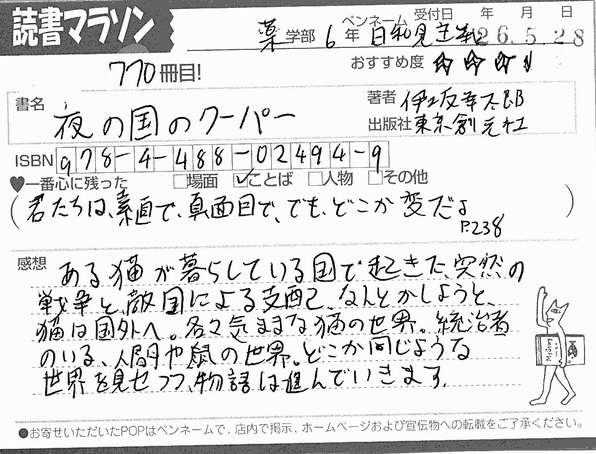 読書マラソン
薬学部 6年 ペンネーム 日和見主義 受付日 年 月 日 26.5.28
770冊目!
おすすめ度 ☆☆☆
書名 夜の国のクーパー
著者 伊坂幸太郎
出版社 東京創元社
ISBN 978-4-488-02494-9
♥一番心に残った □場面 ☑ことば □人物 □その他
(君たちは、素直で、真面目で、でも、どこか変だよ P.238)
感想 ある猫が暮らしている国で起きた、突然の
戦争と、敵国による支配に、なんとかしようと、
猫は国外へ。各々気ままな猫の世界。統治者
のいる、人間や鼠の世界。どこか同じような
世界を見せつつ、物語は進んでいきます。
●お寄せいただいたPOPはペンネームで、店内で掲示、ホームページおよび宣伝物への転載をご了承ください。